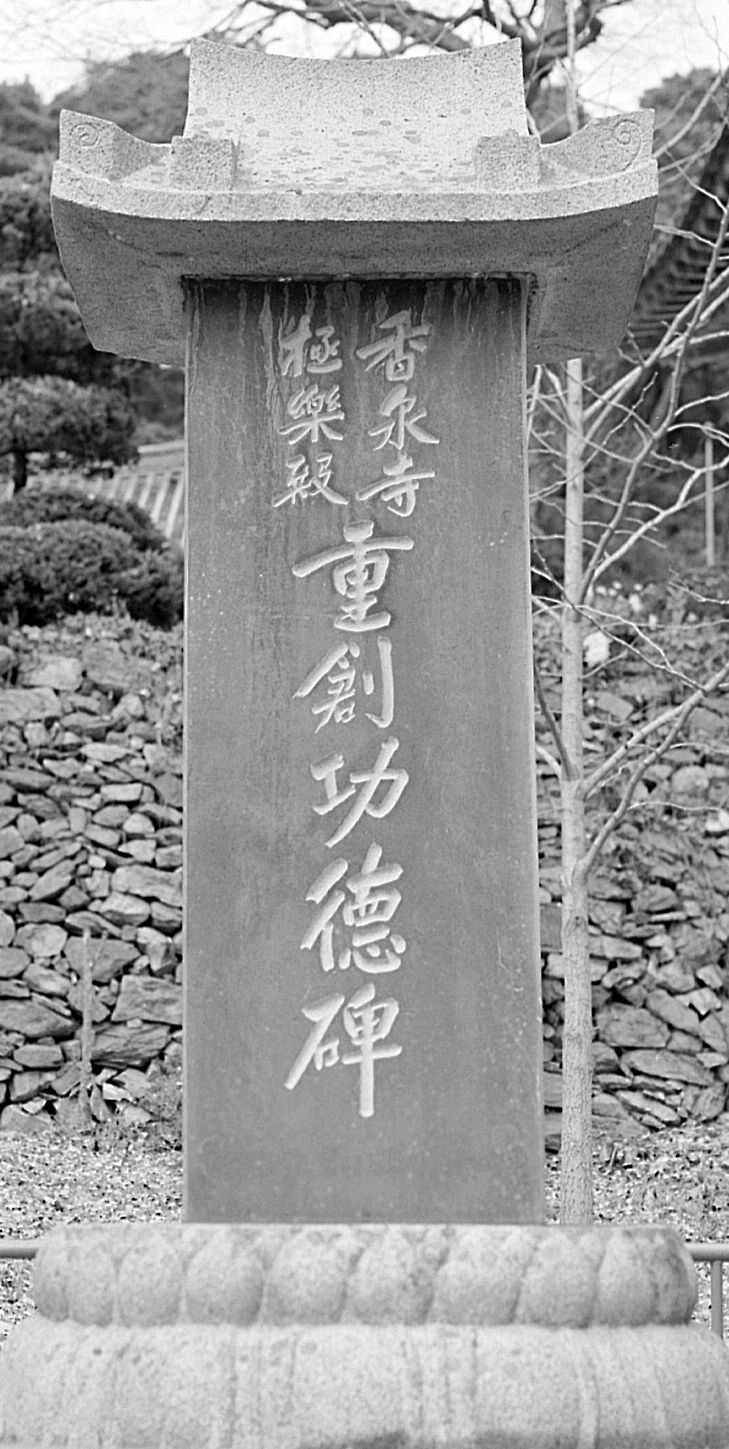 香泉寺
極樂殿
重創功德碑